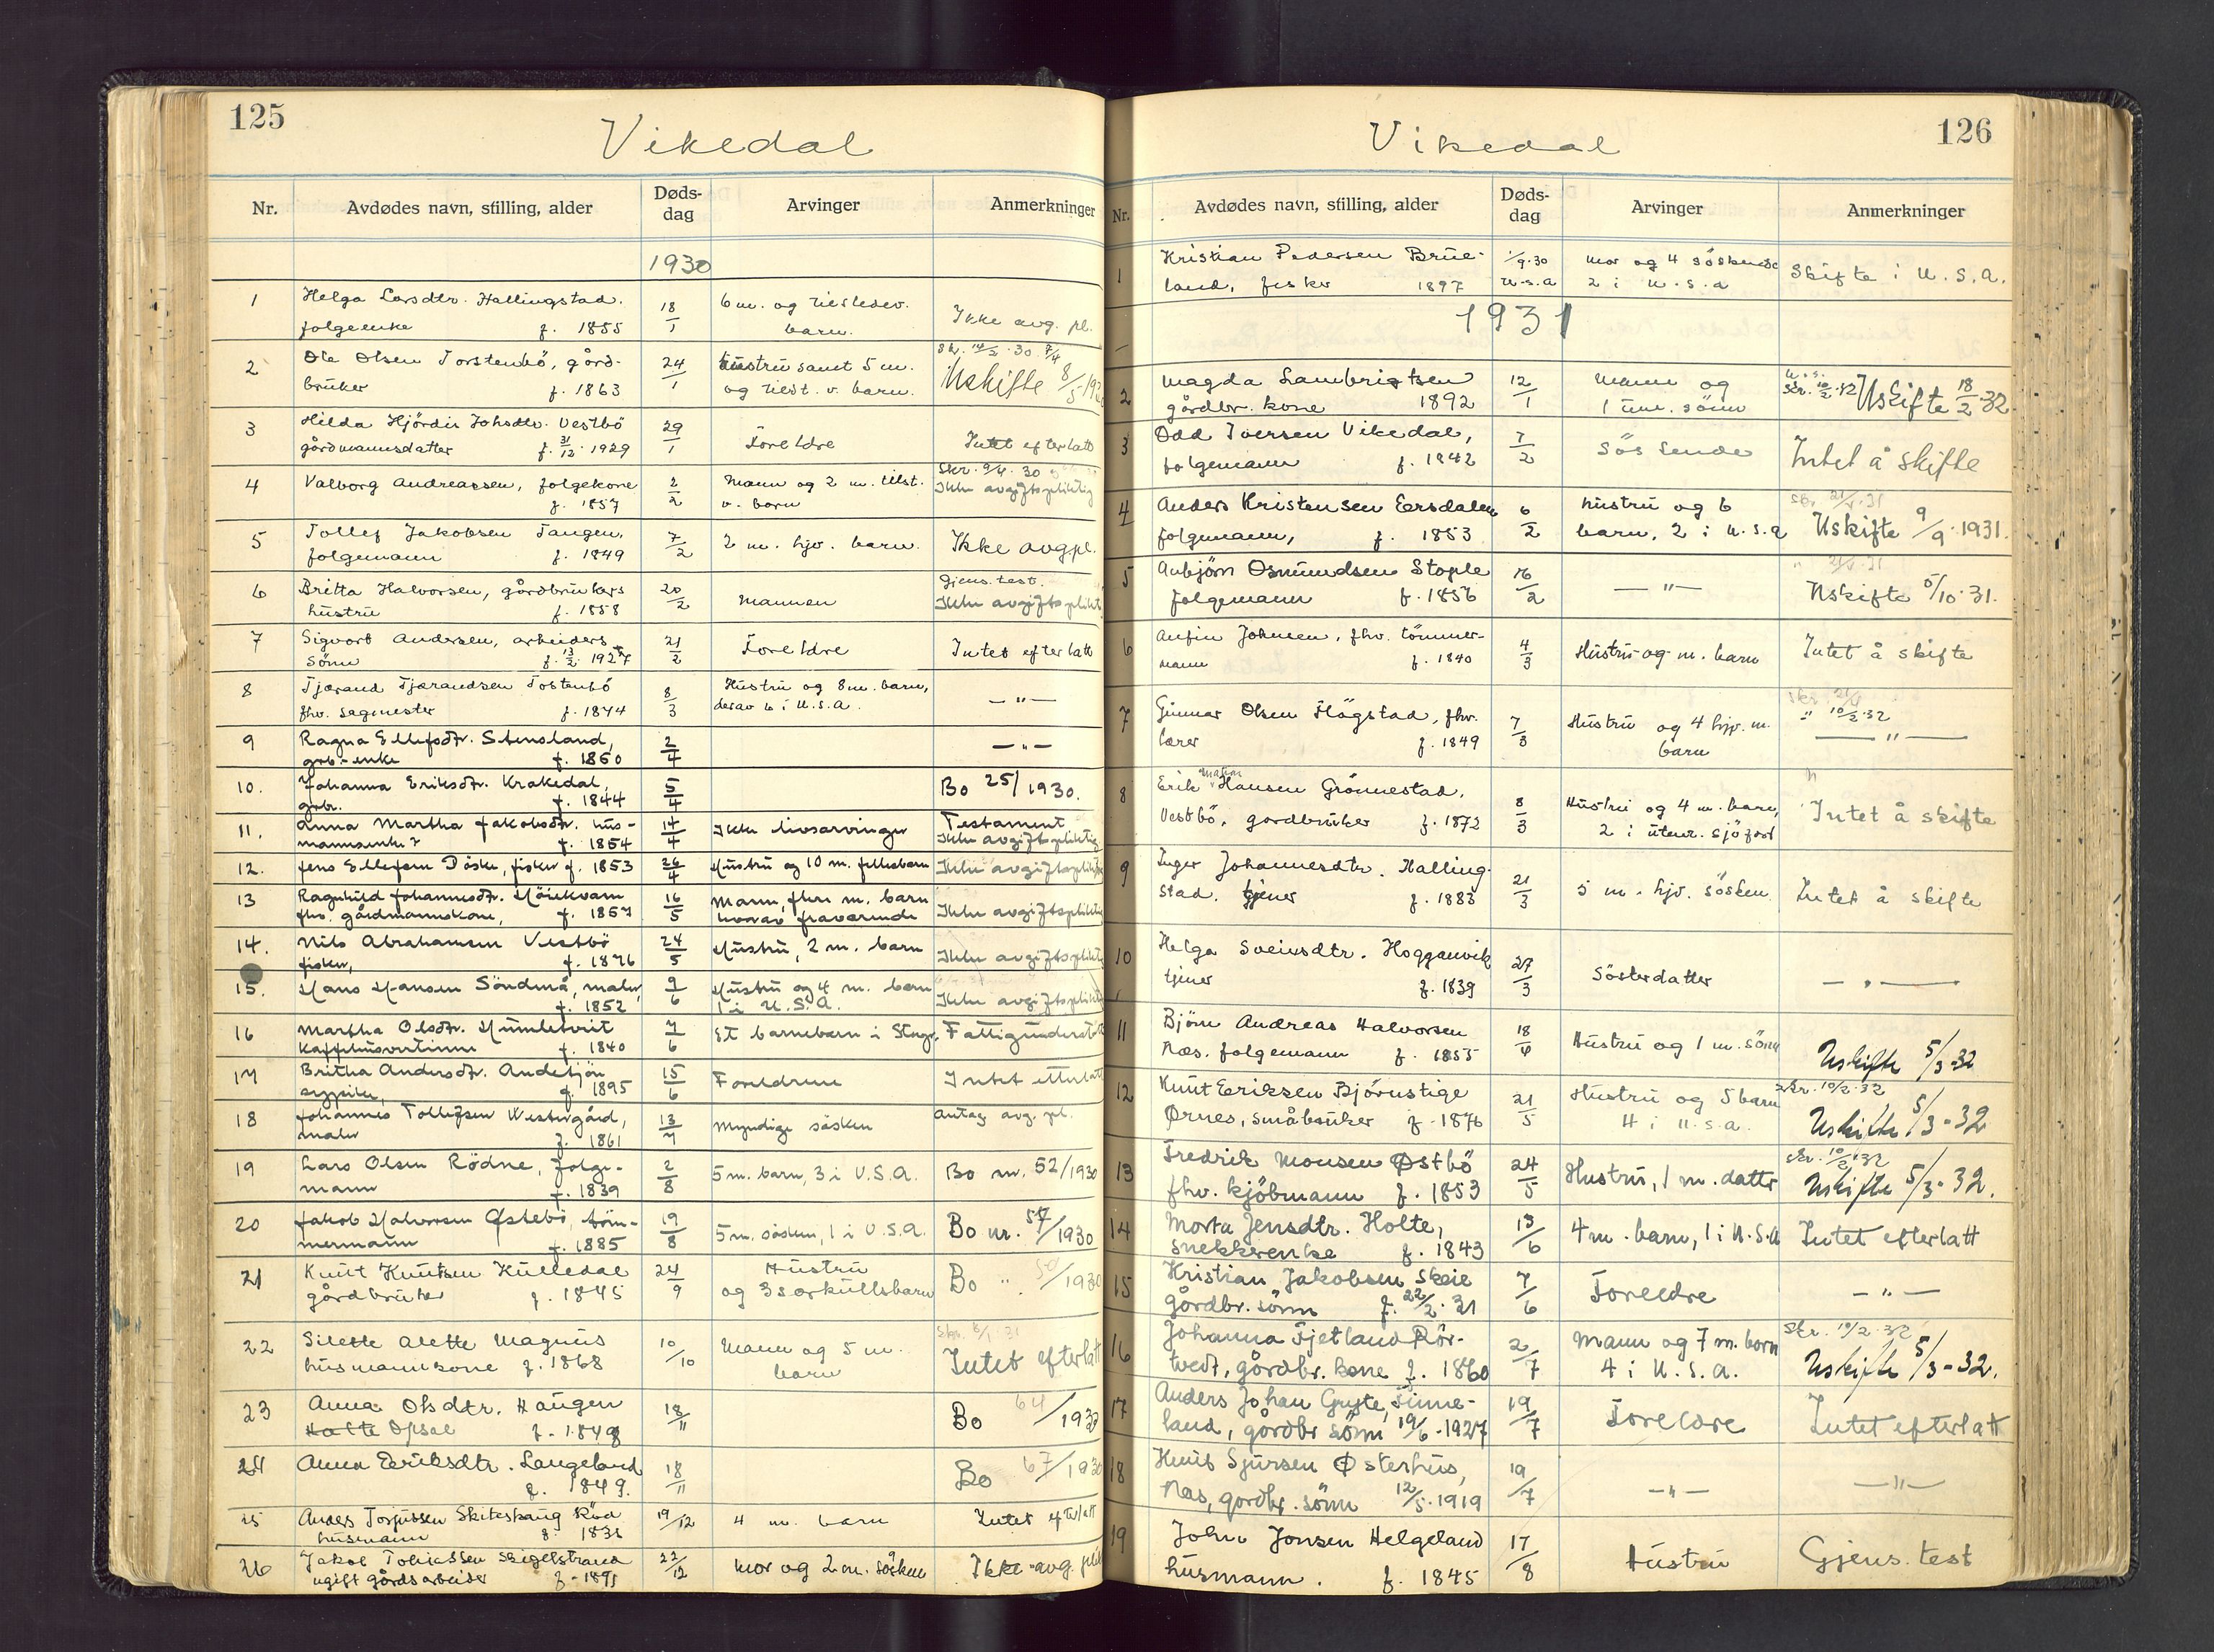 125
Vikedal
Nr. Avdødes navn, stilling, alder Døds-dag Arvinger Anmerkninger
1930
1 Helga Larsdtr. Hallingstad. 18/1 6 m. og tilstedev.
folgeenke f. 1855 barn. Ikke avg. pl.
2 Ole Olsen Torstenbö, gård- 24/1 hustru samt 5 m. Skr. 14/2 30 7/4
bruker f. 1863 og tilst. v. barn. Uskifte 8/5 1930
3 Hilda Hjördis Johsdtr. Vestbö 29/1 Foreldre Intet efterlatt
gårdmannsdatter f. 31/12 1929
4 Valborg Andreassen, folgekone 2/2 Mann og 2 m. tilst. Skr. 9/4. 30
f. 1857 v. barn Ikke avgiftspliktig
5 Tollef Jakobsen Tangen, 7/2 2 m. hjv. barn. Ikke avgpl.
folgemann f. 1849
6 Britta Halvorsen, gårdbrukers 20/2 Mannen Gjens. test.
hustru f. 1858 Ikke avgiftsplikt
7 Sigvart Andersen, arbeiders 21/2 Foreldre Intet efterlatt
sönn f. 13/2 1927
8 Tjærand Tjærandsen Tostenbö 8/3 Hustru og 8 m. barn, — " —
fhv. sagmester f. 1844 derav 6 i U.S.A.
9 Ragna Ellefsdtr. Stensland, 2/4 — " —
grb.-enke f. 1860
10. Johanna Eriksdtr. Krakedal, 5/4 Bo 25/1930.
grbr. f. 1844
11. Anna Martha Jakobsdtr. hus- 14/4 Ikke livsarvinger Testament
mannsenke f. 1854 Ikke avgiftspliktig
12. Jens Ellefsen Döske, fisker f. 1853 26/4 Hustru og 10 m. fellesbarn Ikke avgiftspliktig
13 Ragnhild Johannesdtr. Höiekvam 16/5 Mann, flere m. barn
fhv. gårdmannskone, f. 1857 hvorav fraværende Ikke avgiftsplikti
14. Nils Abrahamsen Vestbö 24/5 Hustru, 2 m. barn
fisker, f. 1876 Ikke avgiftsplikti
15. Hans Hansen Söndenå, maler 9/6 Hustru og 4 m. barn
f. 1852 1 i U.S.A. Ikke avgiftsplikti
16 Martha Olsdtr. 7/6 Et barnebarn i Stvgr. Fattigunderstöt
f. 1840
17 Britha Andersdtr. 15/6 Foreldrene Intet etterlatt
sypike, f. 1895
18 Johannes Tollefsen Westergård, 13/7 Myndige søsken antag. avg. pl.
maler f. 1861
19 Lars Olsen Rödne, folge- 2/8 5 m. barn, 3 i U.S.A. Bo nr. 52/1930
mann f. 1839
20 Jakob Halvorsen Østebö, töm- 19/8 5 m. søsken, 1 i U.S.A. Bo nr. 57/1930
mermann f. 1885
21 Knut Knutsen Kulledal 24/9 Hustru Bo " 50/1930
gårdbruker f. 1845 og 3 særkullsbarn
22 Silette Alette Magnus 10/10 Mann og 5 m. Skr. 8/1 31
husmannskone f. 1868 barn Intet efterlatt
23 Anna Olsdtr. Haugen 18/11 Bo 64/1930
Holte Opsal f. 1848
24 Anna Eriksdtr. Langeland 18/11 Bo 67/1930
f. 1849.
25 Anders Torjussen Skiteshaug Röd 19/12 4 m. barn Intet efterlatt
husmann f. 183
26 Jakob Tobiassen Skigelstrand 22/12 Mor og 2 m. søsken Ikke avg. plik
ugift gårdsarbeider f. 1891
126
Vikedal
Nr. Avdødes navn, stilling, alder Døds-dag Arvinger Anmerkninger
1 Kristian Pedersen Brue- 1/9.30 Mor og 4 söskende Skifte i U.S.A.
land, fisker 1897 U.S.A 2 i U.S.A
1931
2 Magda Lambrigtsen 12/1 Mann og Skr. 10/2 32 Uskifte 18/2 32
gårdbr. kone 1892 1 um. sönn
3 Odd Iversen Vikedal, 7/2 Söskende Intet å skifte
folgemann f. 1842
4 Anders Kristensen Eersdalen 6/2 hustru og 6 Skr. 21/ 31
folgemann, f. 1853 barn, 2 i U.S.A Uskifte 9/9 1931.
5 Anbjörn Osmundsen Stople 16/2 — " — " 21/ 31
folgemann f. 1856 Uskifte 5/10.31.
6 Anfin Johnsen, fhv. tömmer- 4/3 Hustru og m. barn Intet å skifte
mann f. 1840
7 Gunnar Olsen Högstad, fhv. 7/3 Hustru og 4 hjv. m. Skr 21/
lærer f. 1849 barn " 10/2.32
— " —
8 Erik Matias Hansen Grönnestad, 8/3 Hustru og 4 m. barn, Intet å skifte
Vestbö, gårdbruker f. 1872 2 i utenr. sjöfart
9 Inger Johannesdtr. Halling- 21/3 5 m. hjv. sösken. Intet å skifte
stad. tjener f. 1883
10 Helga Sveinsdtr. Hogganvik 27/3 Sösterdatter — " —
tjener f. 1839
11 Björn Andreas Halvorsen 18/4 Hustru og 1 m. sönn
Næs. folgemann f. 1855 Uskifte 5/3-32
12 Knut Eeriksen Bjórnstige 21/5 Hustru og 5 barn Skr. 10/2.32
Ørnes, småbruker f. 1876 4 i U.S.A. Uskifte 5/3-32
13 Fredrik Monsen Østbö 24/5 Hustru, 1 m. datter Skr. 10/2.32
fhv. kjöbmann f. 1853 Uskifte 5/3-32.
14 Marta Jensdtr. Holte, 13/6 4 m. barn, 1 i U.S.A Intet efterlatt
snekkerenke f. 1843
15 Kristian Jakobsen Skeie 7/6 Foreldre — " —
gårdbr. sönn f. 22/2.31
16 Johanna Fjetland Rör- 2/7 Mann og 7 m. barn Skr. 10/2.32
tvedt, gårdbr. kone f. 1860 4 i U.S.A. Uskifte 5/3-32.
17 Anders Johan Gryte, Finne- 19/7 Foreldre Intet efterlatt
land, gårdbr sönn 19/6-1927
18 Knut Sjursen Østerhus, 19/7 — " — — " —
Næs, gårdbr. sönn 12/5.1919
19 John Jonsen Helgeland 17/8 Hustru Gjens. test
husmann. f. 1845